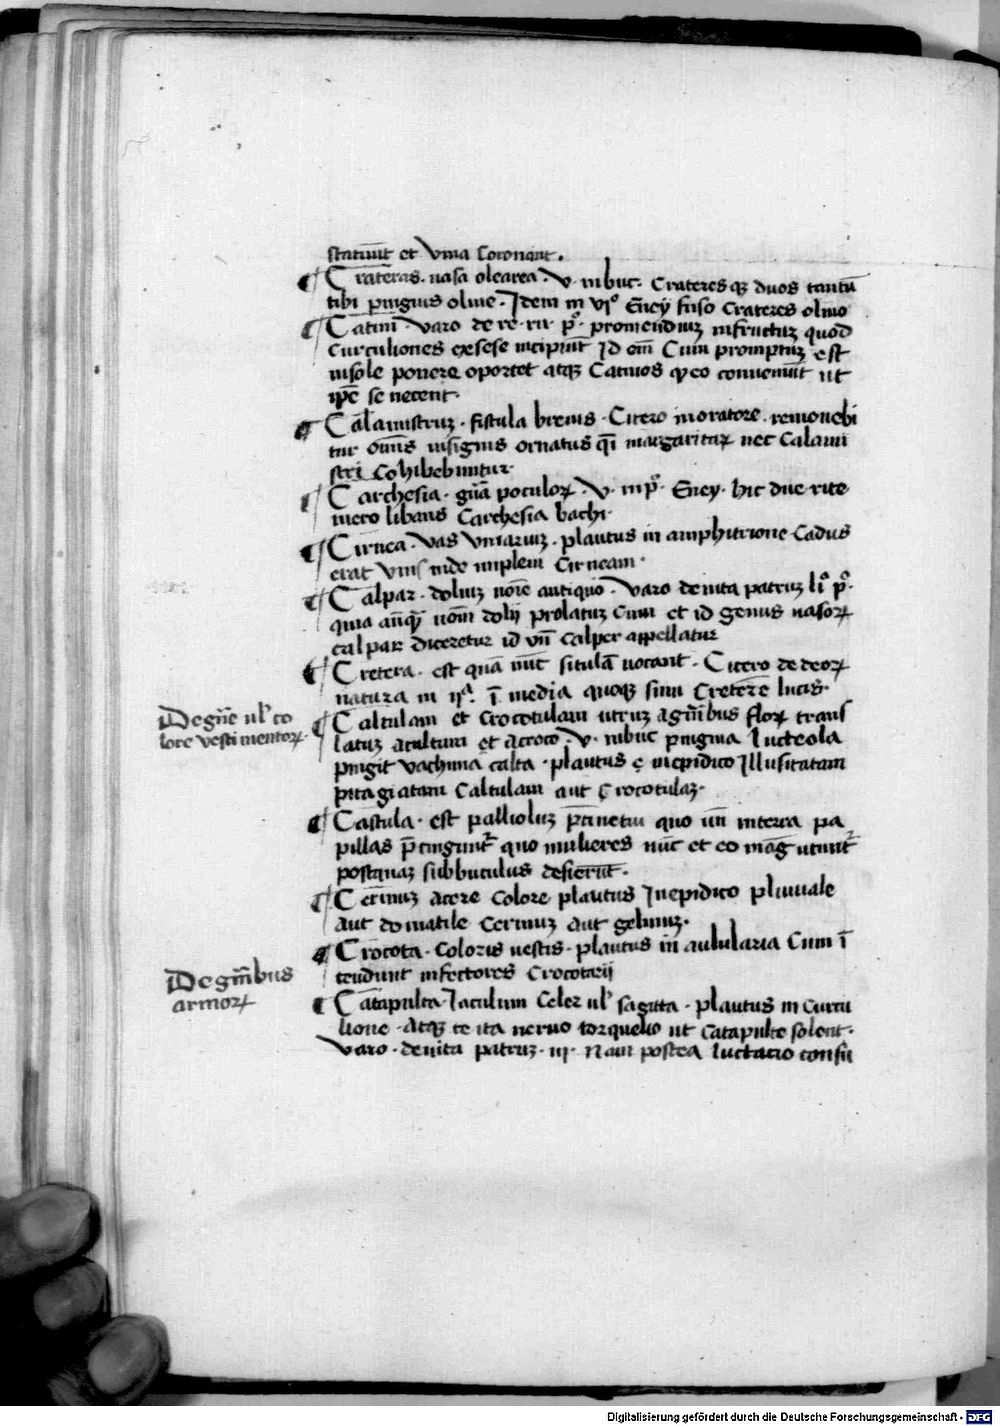 statuūt et vina Coronant.
¶ Crateras. uasa olearea. v. in buc. Crateres qz duos tantū
tibi pinguis oliue. Idem in vi° Eney fuso Crateres oliuo
¶ Catini Varo de re. ru. p°. promenduz in fructuz quod
Curculiones exsese incipiūt Id em̄ Cum promptuz est
in sole ponere oportet atqz Catinos qz eo conueniūt ut
ip̄e se necent.
¶ Calamistruz. fistula breuis. Cicero in oratore. remouebi
tur om̄is insignis ornatus q̄i margaritaꝝ nec Calami
stri Cohibebuntur.
¶ Carchesia. gn̄a poculoꝝ. v. in p°. Eney. hic due rite
mero libans Carchesia bachi.
¶ Cirnea. Vas vinariuz. plautus in amphitrione Cadus
erat vini inde impleui Cirneam.
¶ Calpar. doliuz noīe antiquo. Varo de uita patruz li° p°.
quia an̄qz nom̄ dolij prolatuz Cum et id genus uasoꝝ
calpar diceretur id vn̄ calper appellatur
¶ Cretera. est quā nūc situlā uocant. Cicero de deoꝝ
natura in ijª. ī media quoqz sunt Cretere lucis.
De gn̄e ul' co
lore vestimentoꝝ.
¶ Caltulam et Crocotulam utruz a gn̄ibus floꝝ trans
latuz acultum et a croco. v. in buc pinguia lucteola
pingit vachinia calta. plautus ē in epidico Illusitatam
pitagiatam Caltulam aut Crocotulaz.
¶ Castula. est pallioluz p̄cinctui quo un̄ interea pa
pillas p̄cingunt' quo mulieres nūc et eo mag utunt'
postquaz subbuculus desierūt.
¶ Cerinuz a cere Colore plautus In epidico pluuiale
aut domatile Cerinuz aut gelinuz.
¶ Crocota. Coloris uestis. plautus in aulularia Cum ī
tendunt infectores Crocotarij
De gn̄ibus
armoꝝ
¶ Catapulta. Iaculum Celer ul' sagitta. plautus in Curcu
lione. Atqz te ita neruo torquebo ut Catapulte solent.
Varo. de uita patruz. iij. Nam postea luctatio consu